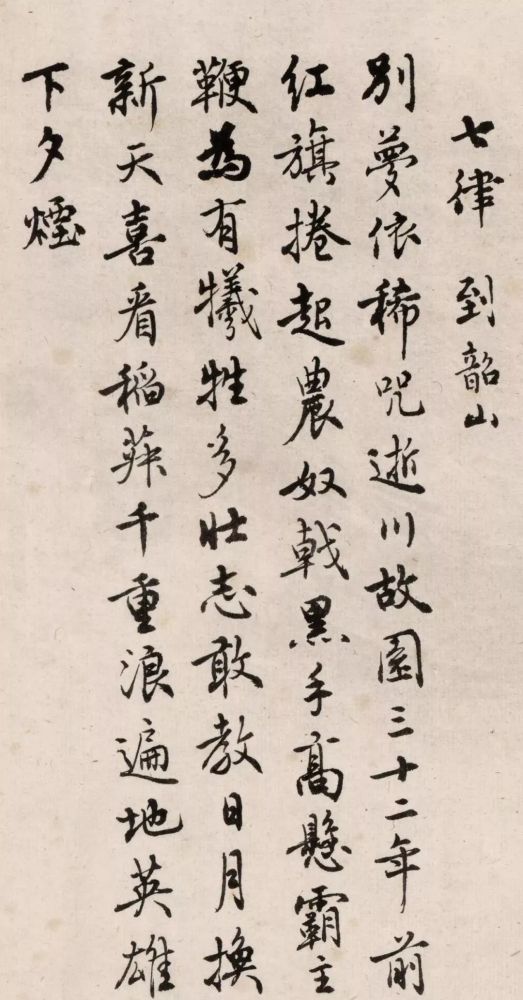 七律 到韶山
别夢依稀咒逝川故園三十二年前
红旗捲起農奴戟黑手高懸霸主
鞭為有犧牲多壮志敢教日月换
新天喜看稻菽千重浪遍地英雄
下夕煙